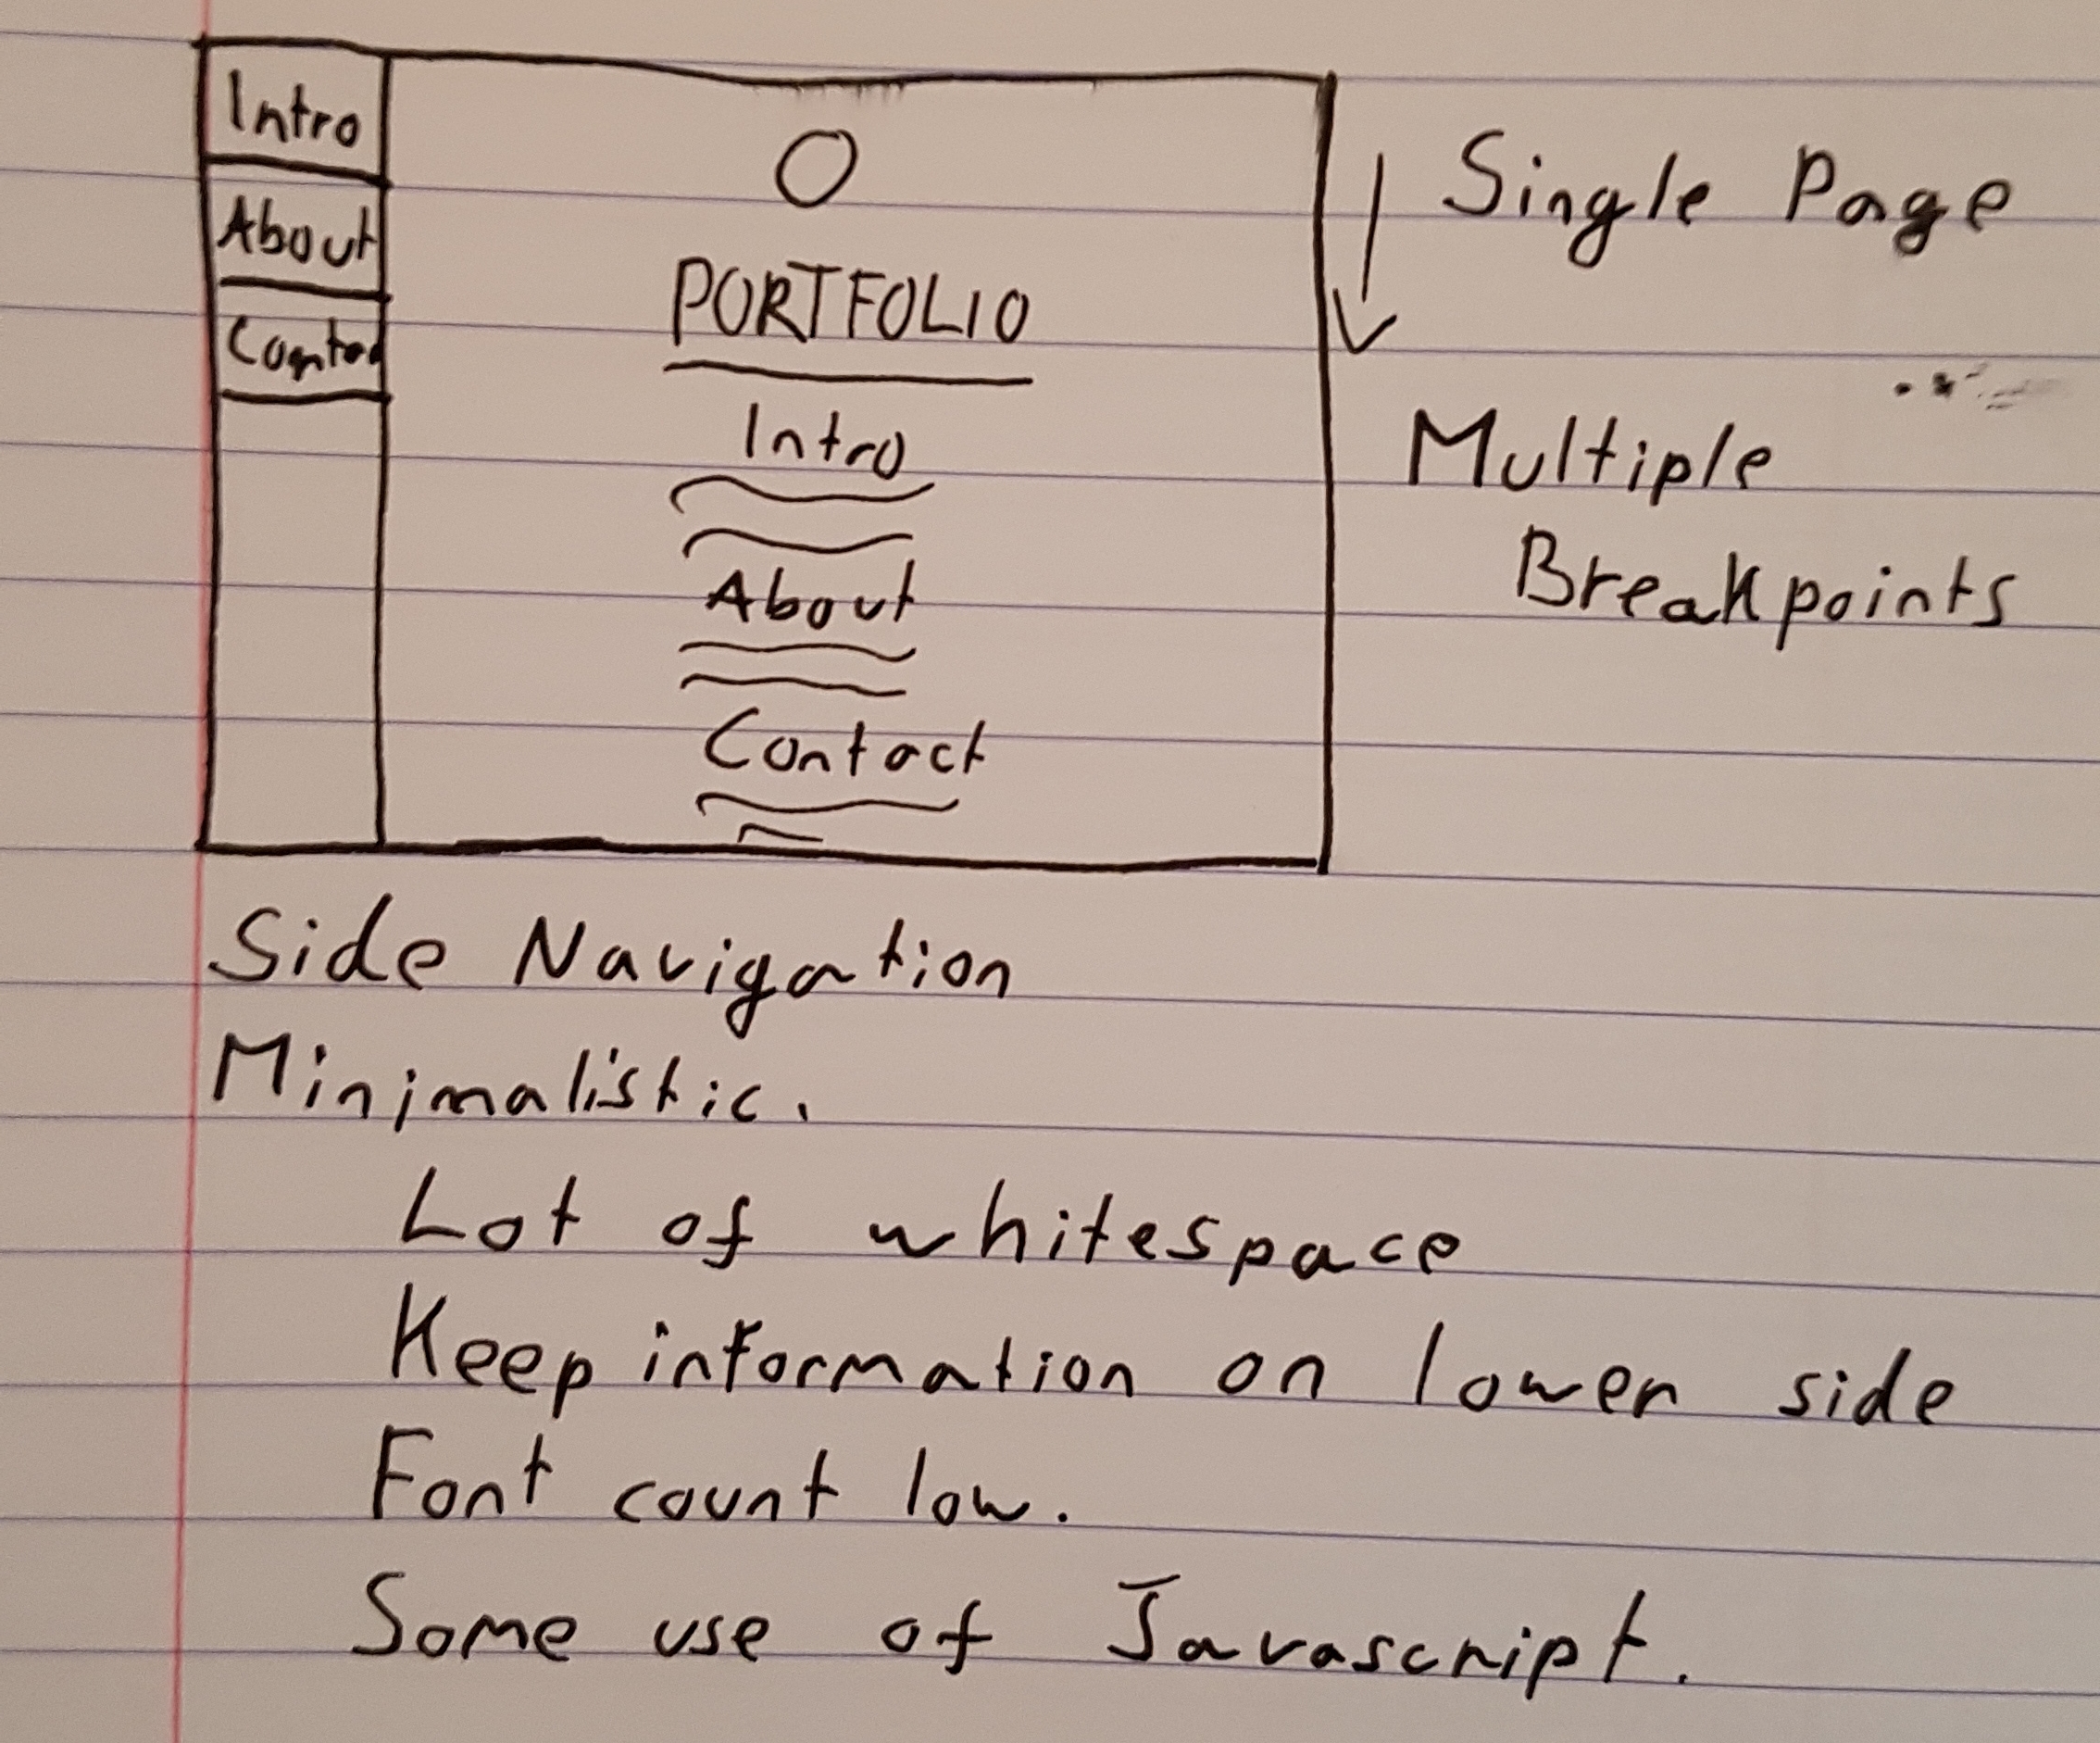 Intro
About
PORTFOLIO
Intro
About
Contact
Single Page
Multiple
Breakpoints
Side Navigation
Minimalistic.
Lot of whitespace
Keep information on lower side
Font count low.
Some use of Javascript.